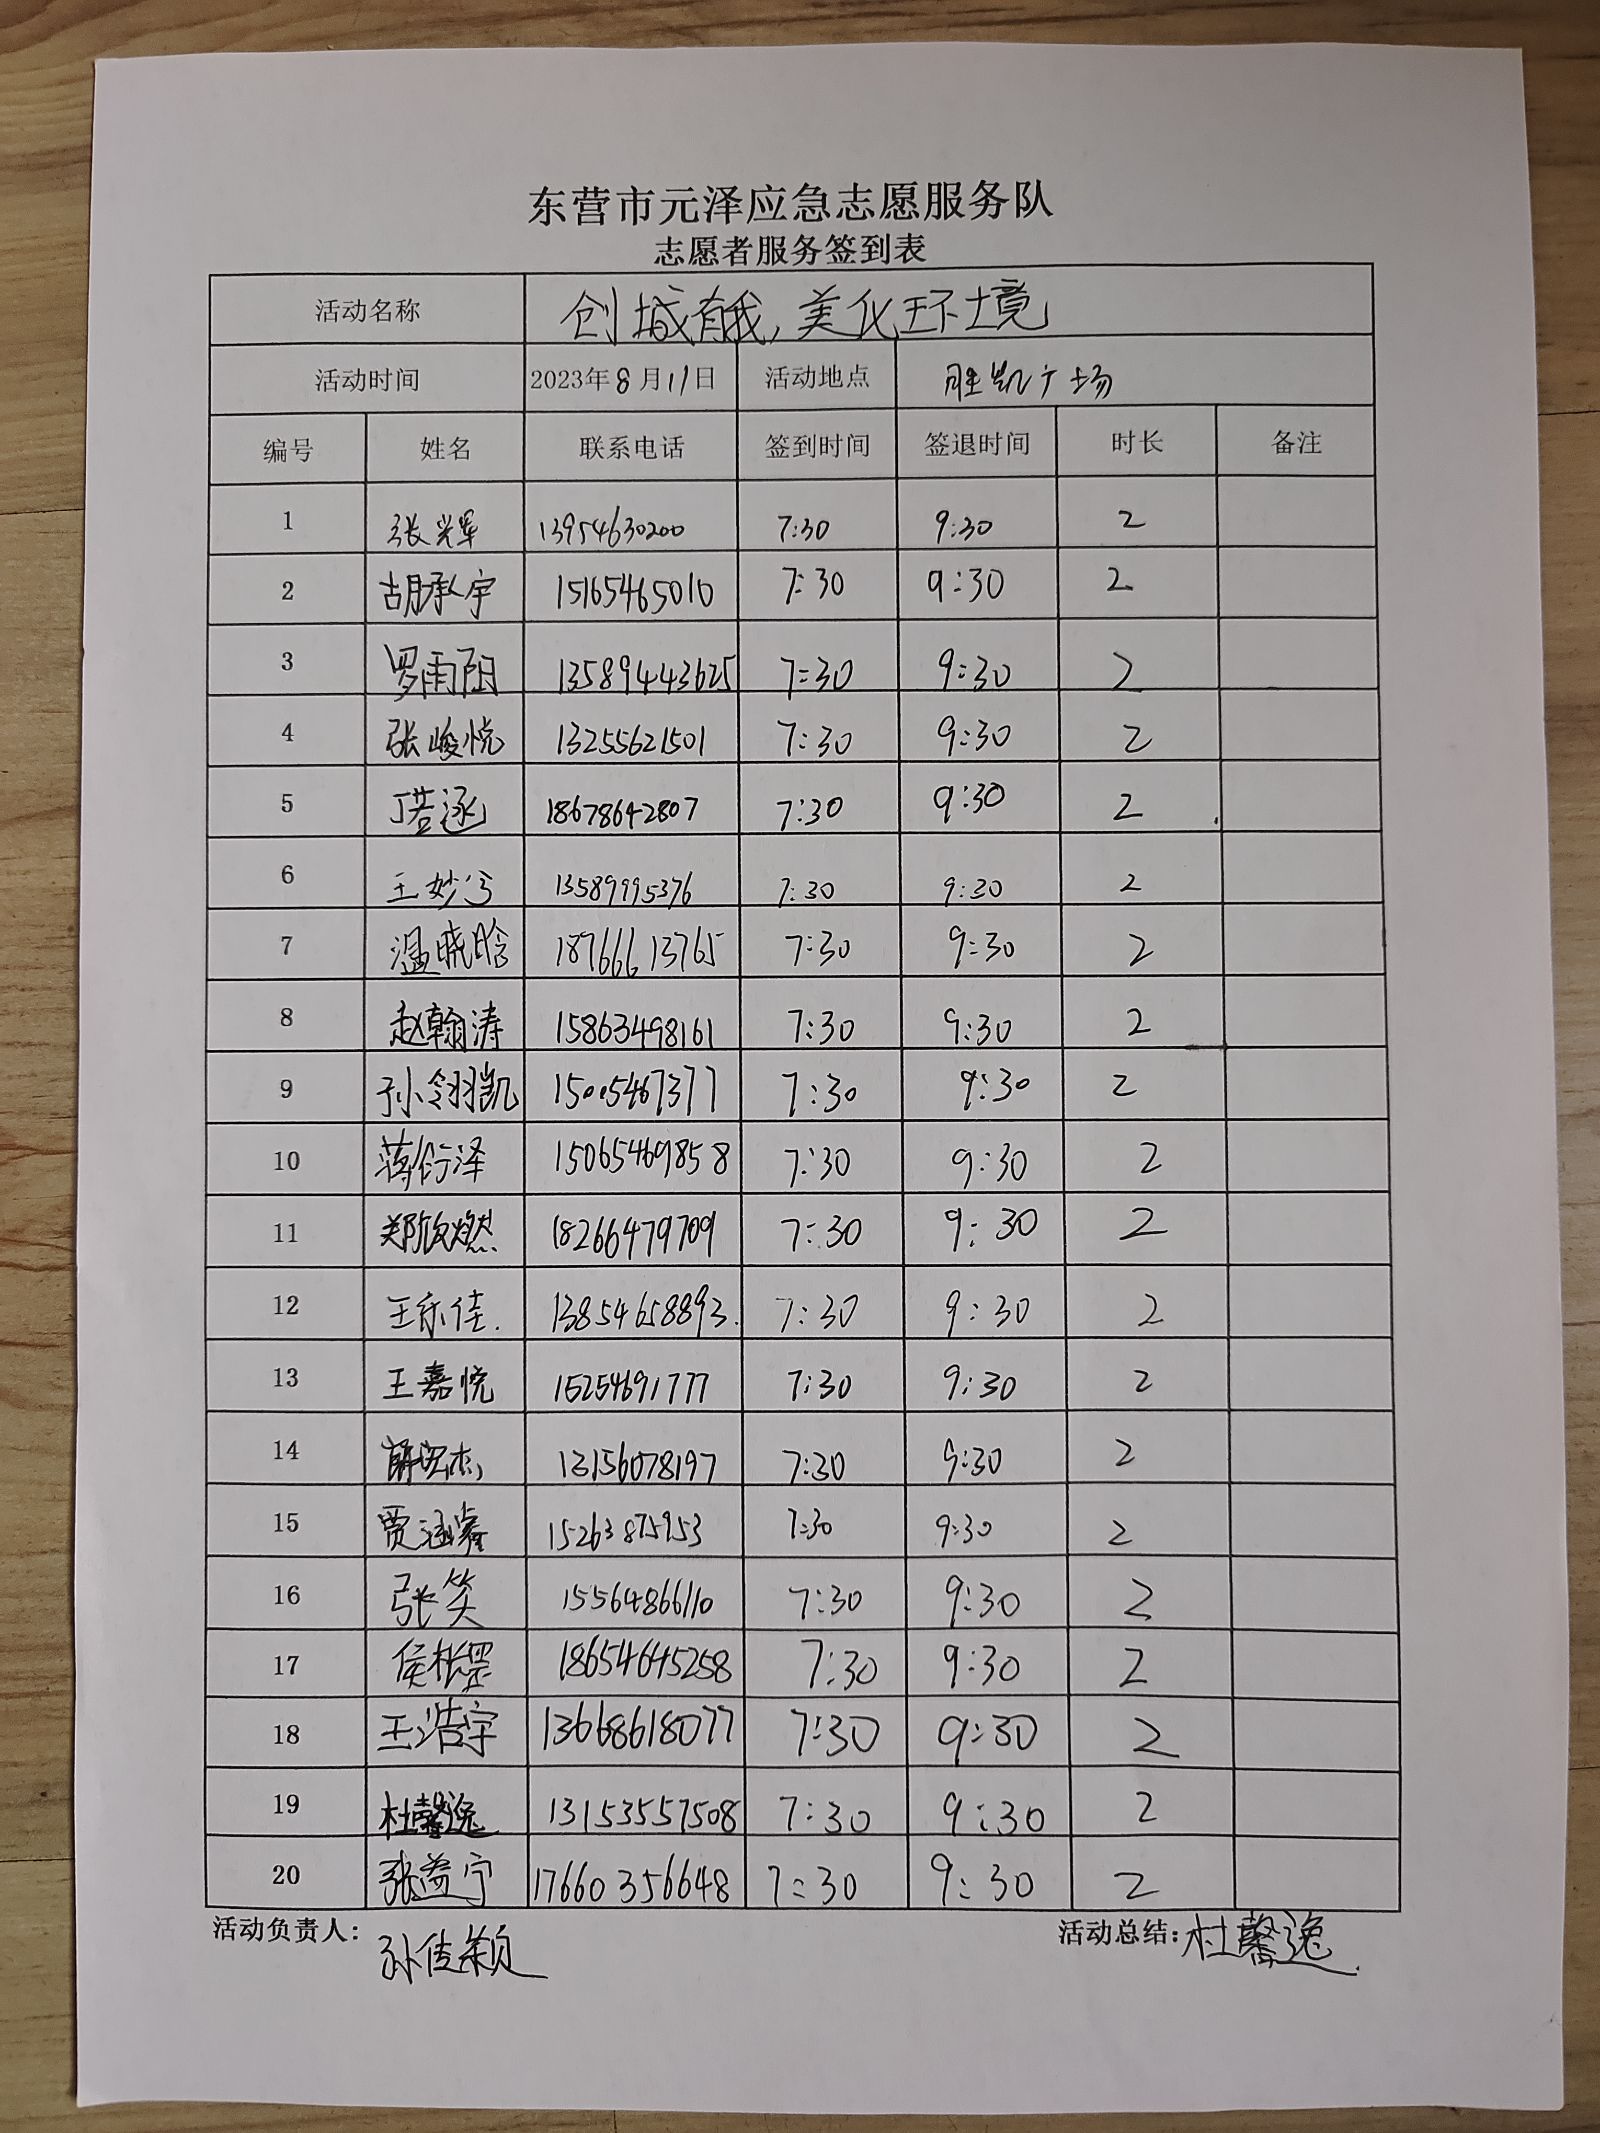 东营市元泽应急志愿服务队
志愿者服务签到表
活动名称 创城有我,美化环境
活动时间 2023年8月11日 活动地点 胜凯广场
编号 姓名 联系电话 签到时间 签退时间 时长 备注
1 张兴军 13954630200 7:30 9:30 2
2 胡承宇 15165465010 7:30 9:30 2
3 罗雨阳 13589443625 7:30 9:30 2
4 张峻悦 13255621501 7:30 9:30 2
5 丁若逐 18678642807 7:30 9:30 2
6 王妙兮 13589995376 7:30 9:30 2
7 温晓晗 18766613765 7:30 9:30 2
8 赵翰涛 15863498161 7:30 9:30 2
9 孙翎凯 15005467377 7:30 9:30 2
10 蒋衍泽 15065469858 7:30 9:30 2
11 郑欣燃 18266479709 7:30 9:30 2
12 王乐佳. 13854658893. 7:30 9:30 2
13 王嘉悦 15254691777 7:30 9:30 2
14 薛宏杰 13156078197 7:30 9:30 2
15 贾涵睿 15263875953 7:30 9:30 2
16 张笑 15564866110 7:30 9:30 2
17 18654645258 7:30 9:30 2
18 王浩宇 13668618077 7:30 9:30 2
19 杜馨逸 13153557508 7:30 9:30 2
20 张益宁 17660356648 7:30 9:30 2
活动负责人: 孙佳颖 活动总结: 杜馨逸.